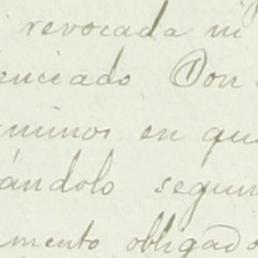 revocada ni
enciado Don
minos en qu
ándolo segun
amento obligado